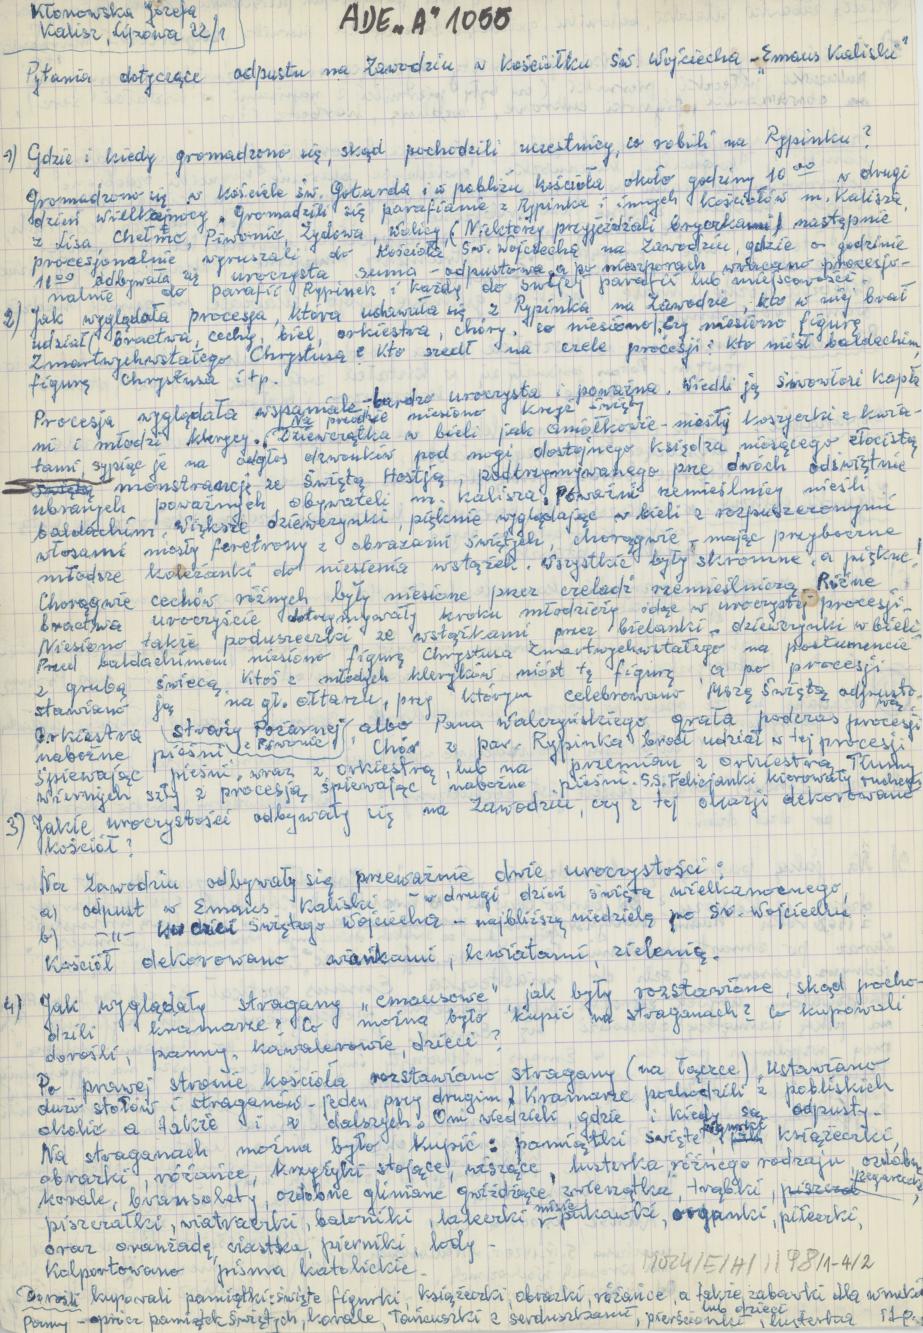 Kłonowska Józefa
Kalisz, Lipowa 22/1
ADE „A" 1055
Pytania dotyczące odpustu na Zawodziu w kościółku św. Wojciecha - „Emaus Kaliski"
1) Gdzie i kiedy gromadzono się, skąd pochodzili uczestnicy, co robili na Rypinku?
Gromadzono się w kościele św. Gotarda i w pobliżu kościoła około godziny 10 00 w drugi
dzień Wielkiejnocy. Gromadzili się parafianie z Rypinka i innych kościołów m. Kalisza,
z Lisa, Chełmc, Piwonic, Żydowa, Wolicy, (Niektórzy przyjeżdżali bryczkami) następnie
procesjonalnie wyruszali do Kościoła św. Wojciecha na Zawodziu, gdzie o godzinie
11 00 odbywała się uroczysta suma - odpustowa, a po nieszporach wracano procesjo-
nalnie do parafii Rypinek i każdy do swojej parafii lub miejscowości.
2) Jak wyglądała procesja, która udawała się z Rypinka na Zawodzie, kto w niej brał
udział (bractwa, cechy, biel, orkiestra, chóry, co niesiono, czy niesiono figurę
Zmartwychwstałego Chrystusa? Kto szedł na czele procesji? Kto niósł baldachim,
figurę Chrystusa itp.
Procesja wyglądała wspaniale - bardzo uroczysta i poważna. Wiedli ją siwowłosi kapła
ni i młodzi klerycy. Na przedzie niesiono krzyż - święty
Dziewczątka w bieli jak aniołkowie - niosły koszyczki z kwia-
tami, sypiąc je na odgłos dzwonków pod nogi dostojnego księdza niosącego złocistą
monstrancję ze świętą Hostją, podtrzymywanego prze dwóch odświętnie
ubranych poważnych obywateli m. Kalisza. Poważni rzemieślnicy nieśli
baldachim. Większe dziewczynki, pięknie wyglądając w bieli z rozpuszczonymi
włosami niosły feretrony z obrazami świętych, chorągwie - mając przyboczne
młodsze koleżanki do niesienia wstążek. Wszystkie były skromne, a piękne!
Chorągwie cechów różnych były niesione przez czeladź rzemieślniczą. Różne
bractwa uroczyście dotrzymywały kroku młodzieży idąc w uroczystej procesji.
Niesiono także poduszeczki ze wstążkami przez bielanki - dziewczynki w bieli.
Przed baldachimem niesiono figurę Chrystusa Zmartwychwstałego na postumencie
z grubą świecą. Ktoś z młodych kleryków niósł tę figurę, a po procesji
stawiano ją na gł. ołtarzu, przy którym celebrowano Mszę Świętą odpusto-
wą.
Orkiestra Straży Pożarnej z Piwonic albo Pana Walczyńskiego grała podczas procesji
nabożne pieśni. Chór z par. Rypinka brał udział w tej procesji
śpiewając pieśni, wraz z orkiestrą, lub na przemian z orkiestrą. Tłumy
wiernych szły z procesją śpiewając nabożne pieśni. S.S. Felicjanki kierowały ruchem
3) Jakie uroczystości odbywały się na Zawodziu, czy z tej okazji dekorowano
kościół?
Na Zawodziu odbywały się przeważnie dwie uroczystości:
a) odpust w Emaus Kaliski - w drugi dzień święta wielkanocnego,
b) -"- Świętego Wojciecha - najbliższą niedzielę po św. Wojciechu.
Kościół dekorowano wiankami, kwiatami, zielenią.
4) Jak wyglądały stragany „emausowe" jak były rozstawione, skąd pocho-
dzili kramarze? Co można było kupić na straganach? Co kupowali
dorośli, panny, kawalerowie, dzieci?
Po prawej stronie kościoła rozstawiano stragany (na łączce), ustawiano
dużo stołów i straganów - jeden przy drugim. Kramarze pochodzili z pobliskich
okolic a także i z dalszych. Oni wiedzieli, gdzie i kiedy są odpusty.
Na straganach można było kupić: pamiątki święte, figurki książeczki,
obrazki, różańce, krzyżyki stojące, wiszące, lusterka różnego rodzaju, ozdoby,
korale, bransolety ozdobne gliniane gwiżdżące zwierzątka, trąbki, zegareczki,
piszczałki, wiatraczki, baloniki, laleczki, misie, pukawki, organki, piłeczki,
oraz oranżadę, ciastka, pierniki, lody.
Kolportowano pisma katolickie.
MOZK/E/A/1198/1-4/2
Dorośli kupowali pamiątki: święte figurki, książeczki, obrazki, różańce, a także zabawki dla wnuków
lub dzieci
Panny - oprócz pamiątek świętych, korale, łańcuszki z serduszkami, pierścionki, lusterka itp.